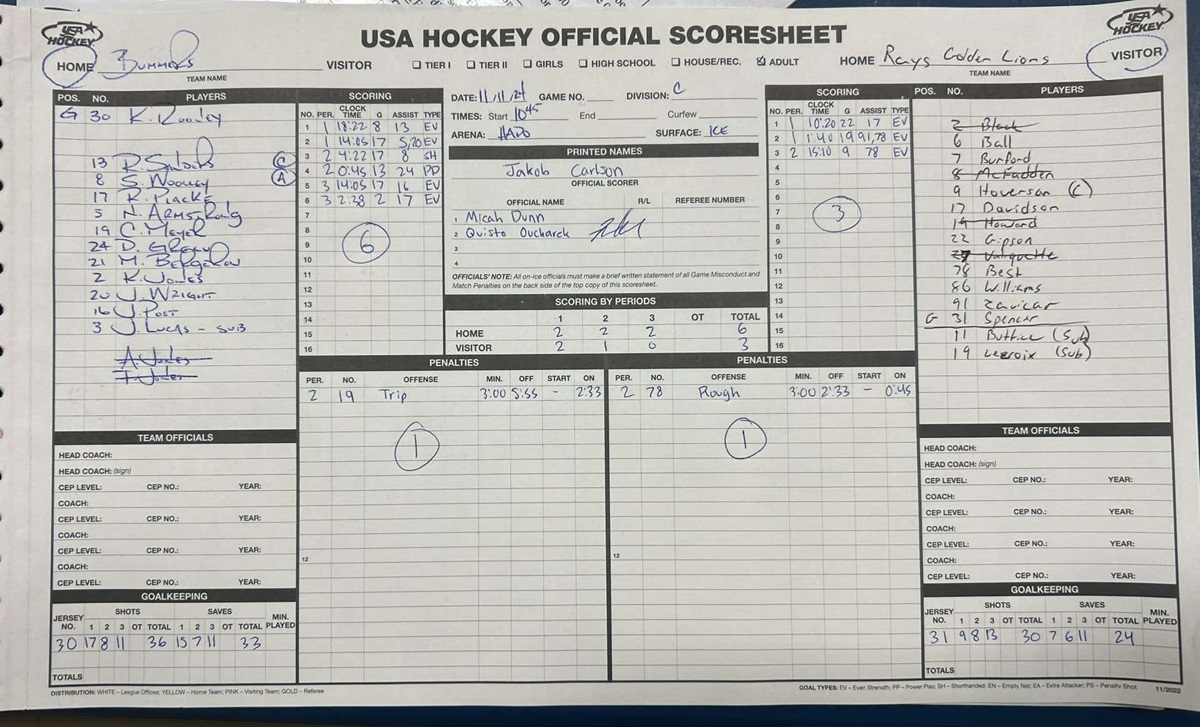 USA HOCKEY
USA HOCKEY OFFICIAL SCORESHEET
USA HOCKEY
HOME Bummers VISITOR
TEAM NAME
☐ TIER I ☐ TIER II ☐ GIRLS ☐ HIGH SCHOOL ☐ HOUSE/REC. ☒ ADULT
HOME Rays Golden Lions VISITOR
TEAM NAME
POS. NO. PLAYERS
G 30 K. Rooney
13 (C)
8 S. Woolley (A)
17 R. Placke
5 N. Armstrong
19 C. Meyer
24 D.
21 M. Bergeron
2 K. Jones
20 J. Wright
16 J. Post
3 J. Lucas - sub
A. Jones
F. Jones
SCORING
NO. PER. CLOCK TIME G ASSIST TYPE
1 1 18:22 8 13 EV
2 1 14:05 17 5,20 EV
3 2 4:22 17 8 SH
4 2 0:45 13 24 PP
5 3 14:05 17 16 EV
6 3 2:38 2 17 EV
7
8
9
10
11
12
13
14
15
16
6
DATE: 11/11/24 GAME NO. DIVISION: C
TIMES: Start 10:45 End Curfew
ARENA: SURFACE: ICE
PRINTED NAMES
Jakob Carlson
OFFICIAL SCORER
OFFICIAL NAME R/L REFEREE NUMBER
1 Micah Dunn
2 Quisto Oucharek
3
4
OFFICIALS' NOTE: All on-ice officials must make a brief written statement of all Game Misconduct and
Match Penalties on the back side of the top copy of this scoresheet.
SCORING BY PERIODS
1 2 3 OT TOTAL
HOME 2 2 2 6
VISITOR 2 1 0 3
SCORING
NO. PER. CLOCK TIME G ASSIST TYPE
1 1 10:20 22 17 EV
2 1 1:40 19 91,78 EV
3 2 15:10 9 78 EV
4
5
6
7
8
9
10
11
12
13
14
15
16
3
POS. NO. PLAYERS
2 Black
6 Ball
7 Burford
8 McFadden
9 Hoverson (C)
17 Davidson
19 Howard
22 Gipson
27
78 Best
86 Williams
91 Zavicar
G 31 Spencer
11 Buttice (Sub)
19 Lacroix (Sub)
PENALTIES
PER. NO. OFFENSE MIN. OFF START ON
2 19 Trip 3:00 5:55 - 2:33
1
12
PENALTIES
PER. NO. OFFENSE MIN. OFF START ON
2 78 Rough 3:00 2:33 - 0:45
1
12
TEAM OFFICIALS
HEAD COACH:
HEAD COACH: (sign)
CEP LEVEL: CEP NO.: YEAR:
COACH:
CEP LEVEL: CEP NO.: YEAR:
COACH:
CEP LEVEL: CEP NO.: YEAR:
COACH:
CEP LEVEL: CEP NO.: YEAR:
GOALKEEPING
JERSEY NO. SHOTS 1 2 3 OT TOTAL SAVES 1 2 3 OT TOTAL MIN. PLAYED
30 17 8 11 36 15 7 11 33
TOTALS
TEAM OFFICIALS
HEAD COACH:
HEAD COACH: (sign)
CEP LEVEL: CEP NO.: YEAR:
COACH:
CEP LEVEL: CEP NO.: YEAR:
COACH:
CEP LEVEL: CEP NO.: YEAR:
COACH:
CEP LEVEL: CEP NO.: YEAR:
GOALKEEPING
JERSEY NO. SHOTS 1 2 3 OT TOTAL SAVES 1 2 3 OT TOTAL MIN. PLAYED
31 9 8 13 30 7 6 11 24
TOTALS
DISTRIBUTION: WHITE – League Offices; YELLOW – Home Team; PINK – Visiting Team; GOLD – Referee
GOAL TYPES: EV – Even Strength; PP – Power Play; SH – Shorthanded; EN – Empty Net; EA – Extra Attacker; PS – Penalty Shot 11/2022